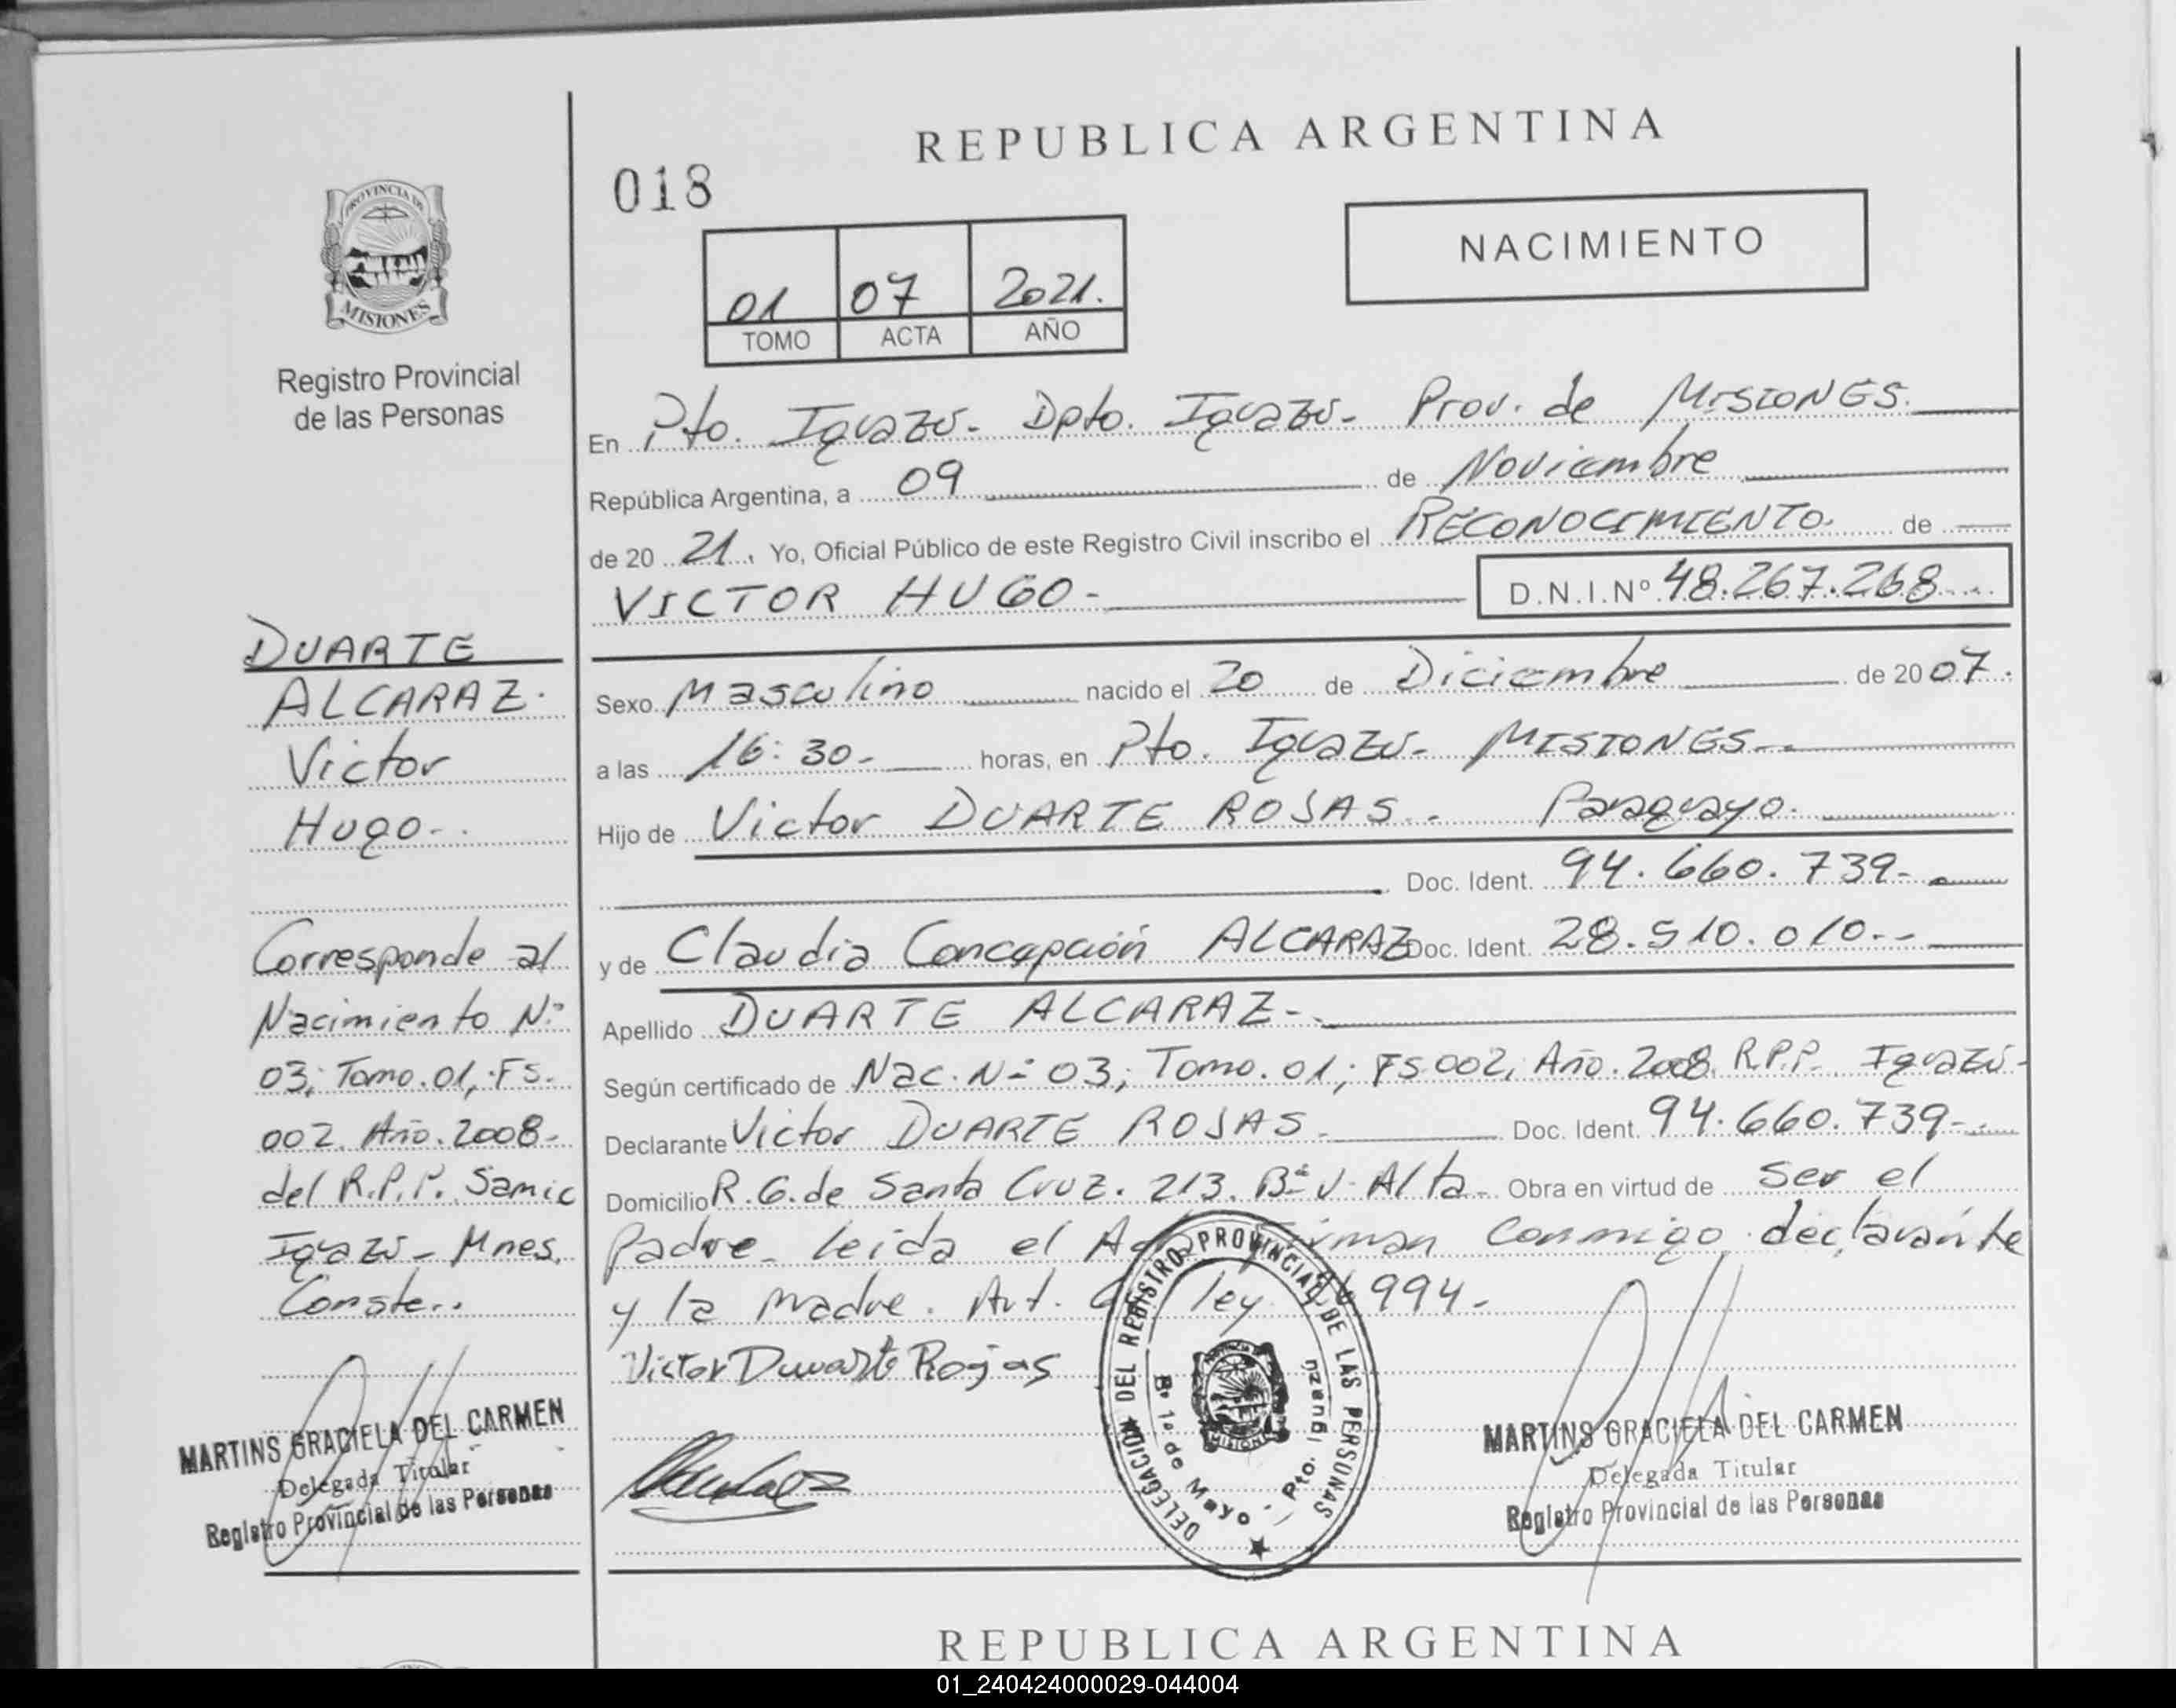 REPUBLICA ARGENTINA
018
NACIMIENTO
PROVINCIA DE
MISIONES
01 07 2021.
TOMO ACTA AÑO
Registro Provincial
de las Personas
En Pto. Iguazú- Dpto. Iguazú- Prov. de MISIONES.
República Argentina, a 09 de Noviembre
de 20 21, Yo, Oficial Público de este Registro Civil inscribo el RECONOCIMIENTO. de
VICTOR HUGO-
D.N.I.Nº 48.267.268
DUARTE
ALCARAZ.
Victor
Hugo-.
Corresponde al
Nacimiento Nº
03; Tomo.01, FS.
002. Año.2008-
del R.P.P. Samic
Iguazú- Mnes.
Conste..
MARTINS GRACIELA DEL CARMEN
Delegada Titular
Registro Provincial de las Personas
Sexo Masculino nacido el 20 de Diciembre de 20 07.
a las 16:30- horas, en Pto. Iguazú- MISIONES-.
Hijo de Victor DUARTE ROJAS-. Paraguayo.
Doc. Ident. 94.660.739-
y de Claudia Concepción ALCARAZ Doc. Ident. 28.510.010--
Apellido DUARTE ALCARAZ-.
Según certificado de Nac. Nº 03; Tomo.01; FS 002; Año.2008. R.P.P. Iguazú-
Declarante Victor DUARTE ROJAS- Doc. Ident. 94.660.739-
Domicilio R.G. de Santa Cruz. 213. Bº V. Alta- Obra en virtud de Ser el
Padre- leida el Acta Firman Conmigo declarante
y la Madre. Art. ley 26994-
Victor Duarte Rojas
DELEGACION DEL REGISTRO PROVINCIAL DE LAS PERSONAS
Bº 1º de Mayo - Pto. Iguazú
MISIONES
MARTINS GRACIELA DEL CARMEN
Delegada Titular
Registro Provincial de las Personas
REPUBLICA ARGENTINA
01_240424000029-044004